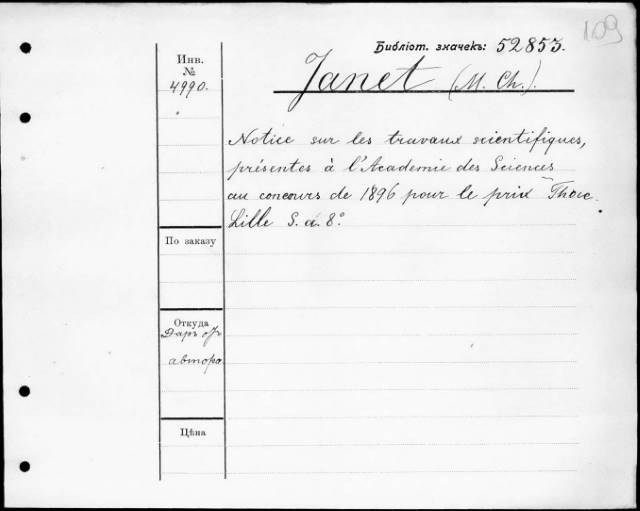 109
Библіот. значекъ: 52853.
Инв.
№
4990.
Janet (M. Ch.).
Notice sur les travaux scientifiques,
présentes à l'Academie des Sciences
au concours de 1896 pour le prix Thore.
Lille S. a. 8º
По заказу
Откуда
Даръ отъ
автора
Цѣна